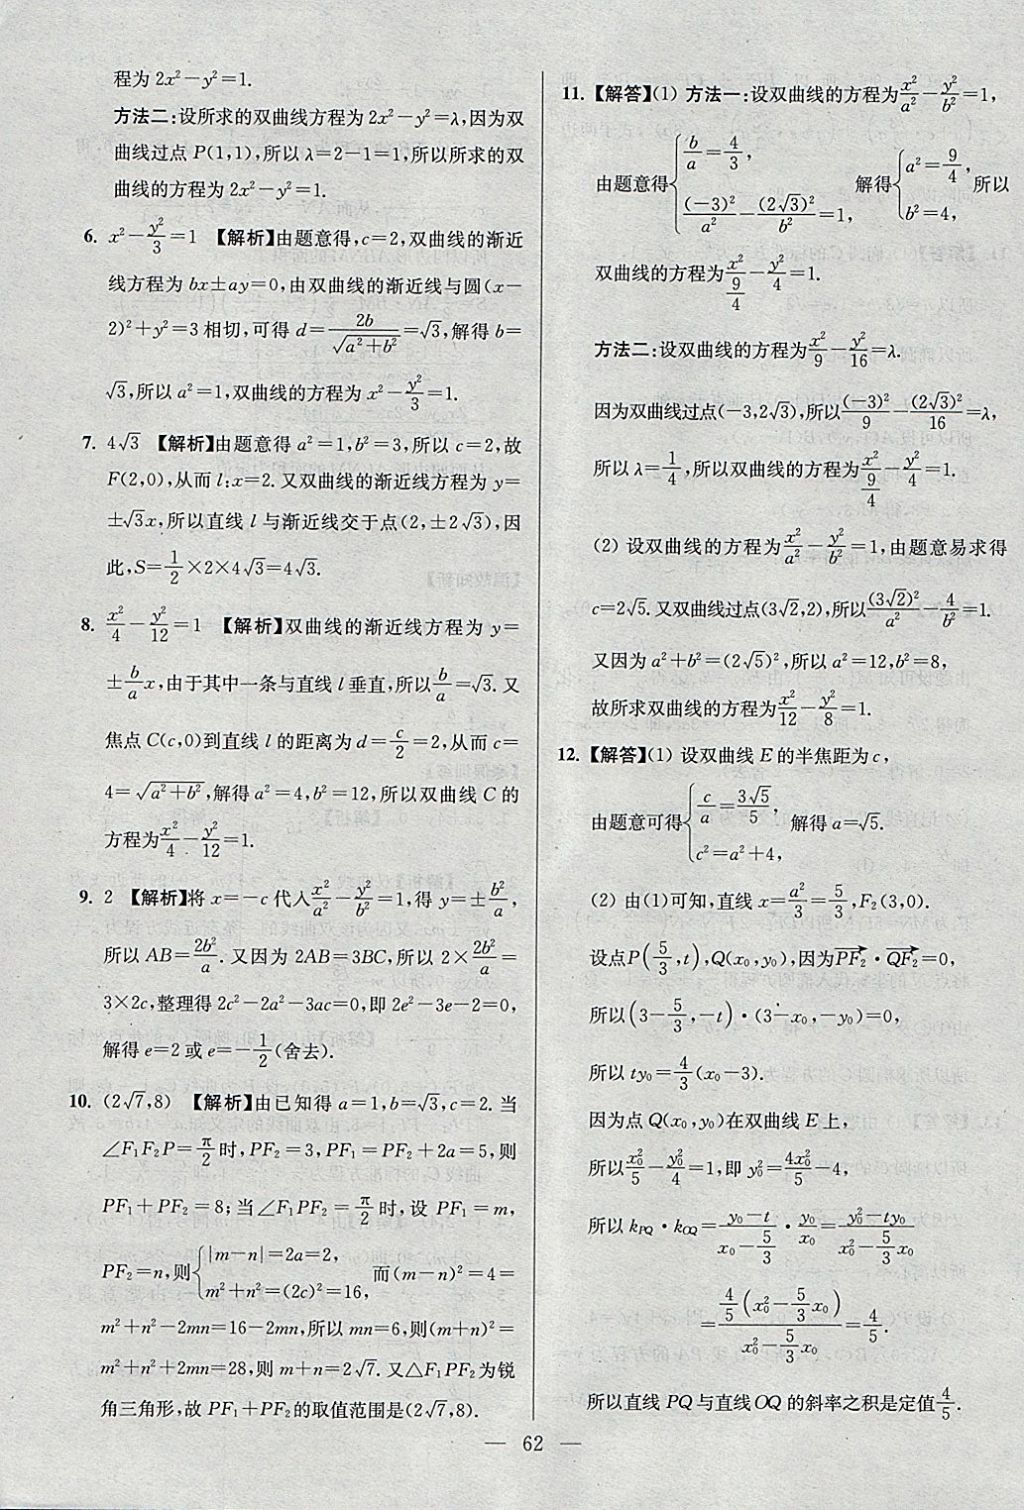 程为 2x²－y²＝1.
方法二:设所求的双曲线方程为 2x²－y²＝λ,因为双
曲线过点 P(1,1),所以 λ＝2－1＝1,所以所求的双
曲线的方程为 2x²－y²＝1.
6. x²－y²/3＝1 【解析】由题意得,c＝2,双曲线的渐近
线方程为 bx±ay＝0,由双曲线的渐近线与圆(x－
2)²＋y²＝3 相切,可得 d＝2b/√(a²＋b²)＝√3,解得 b＝
√3,所以 a²＝1,双曲线的方程为 x²－y²/3＝1.
7. 4√3 【解析】由题意得 a²＝1,b²＝3,所以 c＝2,故
F(2,0),从而 l:x＝2. 又双曲线的渐近线方程为 y＝
±√3x,所以直线 l 与渐近线交于点(2,±2√3),因
此,S＝1/2×2×4√3＝4√3.
8. x²/4－y²/12＝1 【解析】双曲线的渐近线方程为 y＝
±b/a x,由于其中一条与直线 l 垂直,所以 b/a＝√3. 又
焦点 C(c,0)到直线 l 的距离为 d＝c/2＝2,从而 c＝
4＝√(a²＋b²),解得 a²＝4,b²＝12,所以双曲线 C 的
方程为 x²/4－y²/12＝1.
9. 2 【解析】将 x＝－c 代入 x²/a²－y²/b²＝1,得 y＝±b²/a,
所以 AB＝2b²/a. 又因为 2AB＝3BC,所以 2×2b²/a＝
3×2c,整理得 2c²－2a²－3ac＝0,即 2e²－3e－2＝0,
解得 e＝2 或 e＝－1/2(舍去).
10. (2√7,8) 【解析】由已知得 a＝1,b＝√3,c＝2. 当
∠F₁F₂P＝π/2 时,PF₂＝3,PF₁＝PF₂＋2a＝5,则
PF₁＋PF₂＝8;当∠F₁PF₂＝π/2 时,设 PF₁＝m,
PF₂＝n,则{|m－n|＝2a＝2, m²＋n²＝(2c)²＝16, 而(m－n)²＝4＝
m²＋n²－2mn＝16－2mn,所以 mn＝6,则(m＋n)²＝
m²＋n²＋2mn＝28,则 m＋n＝2√7. 又△F₁PF₂为锐
角三角形,故 PF₁＋PF₂的取值范围是(2√7,8).
11. 【解答】(1) 方法一:设双曲线的方程为 x²/a²－y²/b²＝1,
由题意得{b/a＝4/3, (－3)²/a²－(2√3)²/b²＝1, 解得{a²＝9/4, b²＝4, 所以
双曲线的方程为 x²/(9/4)－y²/4＝1.
方法二:设双曲线的方程为 x²/9－y²/16＝λ.
因为双曲线过点(－3,2√3),所以(－3)²/9－(2√3)²/16＝λ,
所以 λ＝1/4,所以双曲线的方程为 x²/(9/4)－y²/4＝1.
(2) 设双曲线的方程为 x²/a²－y²/b²＝1,由题意易求得
c＝2√5. 又双曲线过点(3√2,2),所以(3√2)²/a²－4/b²＝1.
又因为 a²＋b²＝(2√5)²,所以 a²＝12,b²＝8,
故所求双曲线的方程为 x²/12－y²/8＝1.
12. 【解答】(1) 设双曲线 E 的半焦距为 c,
由题意可得{c/a＝3√5/5, c²＝a²＋4, 解得 a＝√5.
(2) 由(1)可知,直线 x＝a²/3＝5/3,F₂(3,0).
设点P(5/3,t),Q(x₀,y₀),因为PF₂→·QF₂→＝0,
所以(3－5/3,－t)·(3－x₀,－y₀)＝0,
所以 ty₀＝4/3(x₀－3).
因为点 Q(x₀,y₀)在双曲线 E 上,
所以 x₀²/5－y₀²/4＝1,即 y₀²＝4x₀²/5－4,
所以 k_PQ·k_OQ＝(y₀－t)/(x₀－5/3)·y₀/x₀＝(y₀²－ty₀)/(x₀²－5/3x₀)
＝4/5(x₀²－5/3x₀)/(x₀²－5/3x₀)＝4/5.
所以直线 PQ 与直线 OQ 的斜率之积是定值4/5.
— 62 —